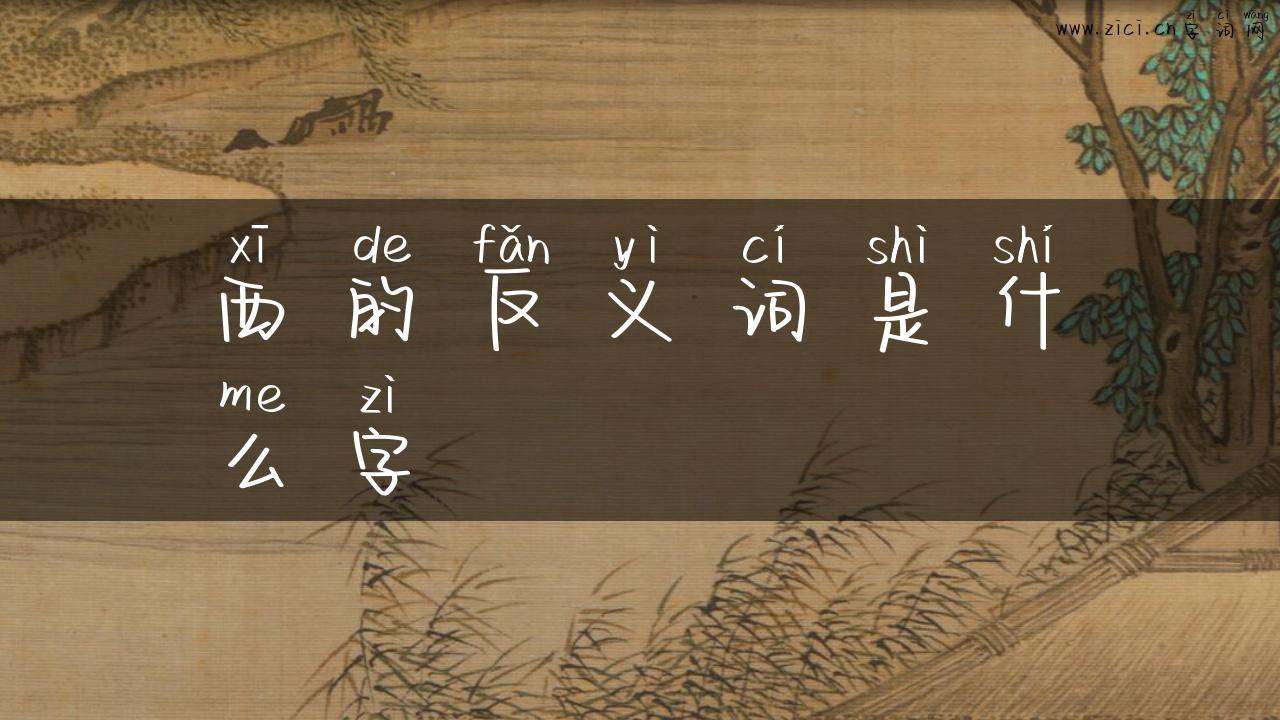 zì cí wǎng
www.zici.cn字词网
xī de fǎn yì cí shì shí
西的反义词是什
me zì
么字